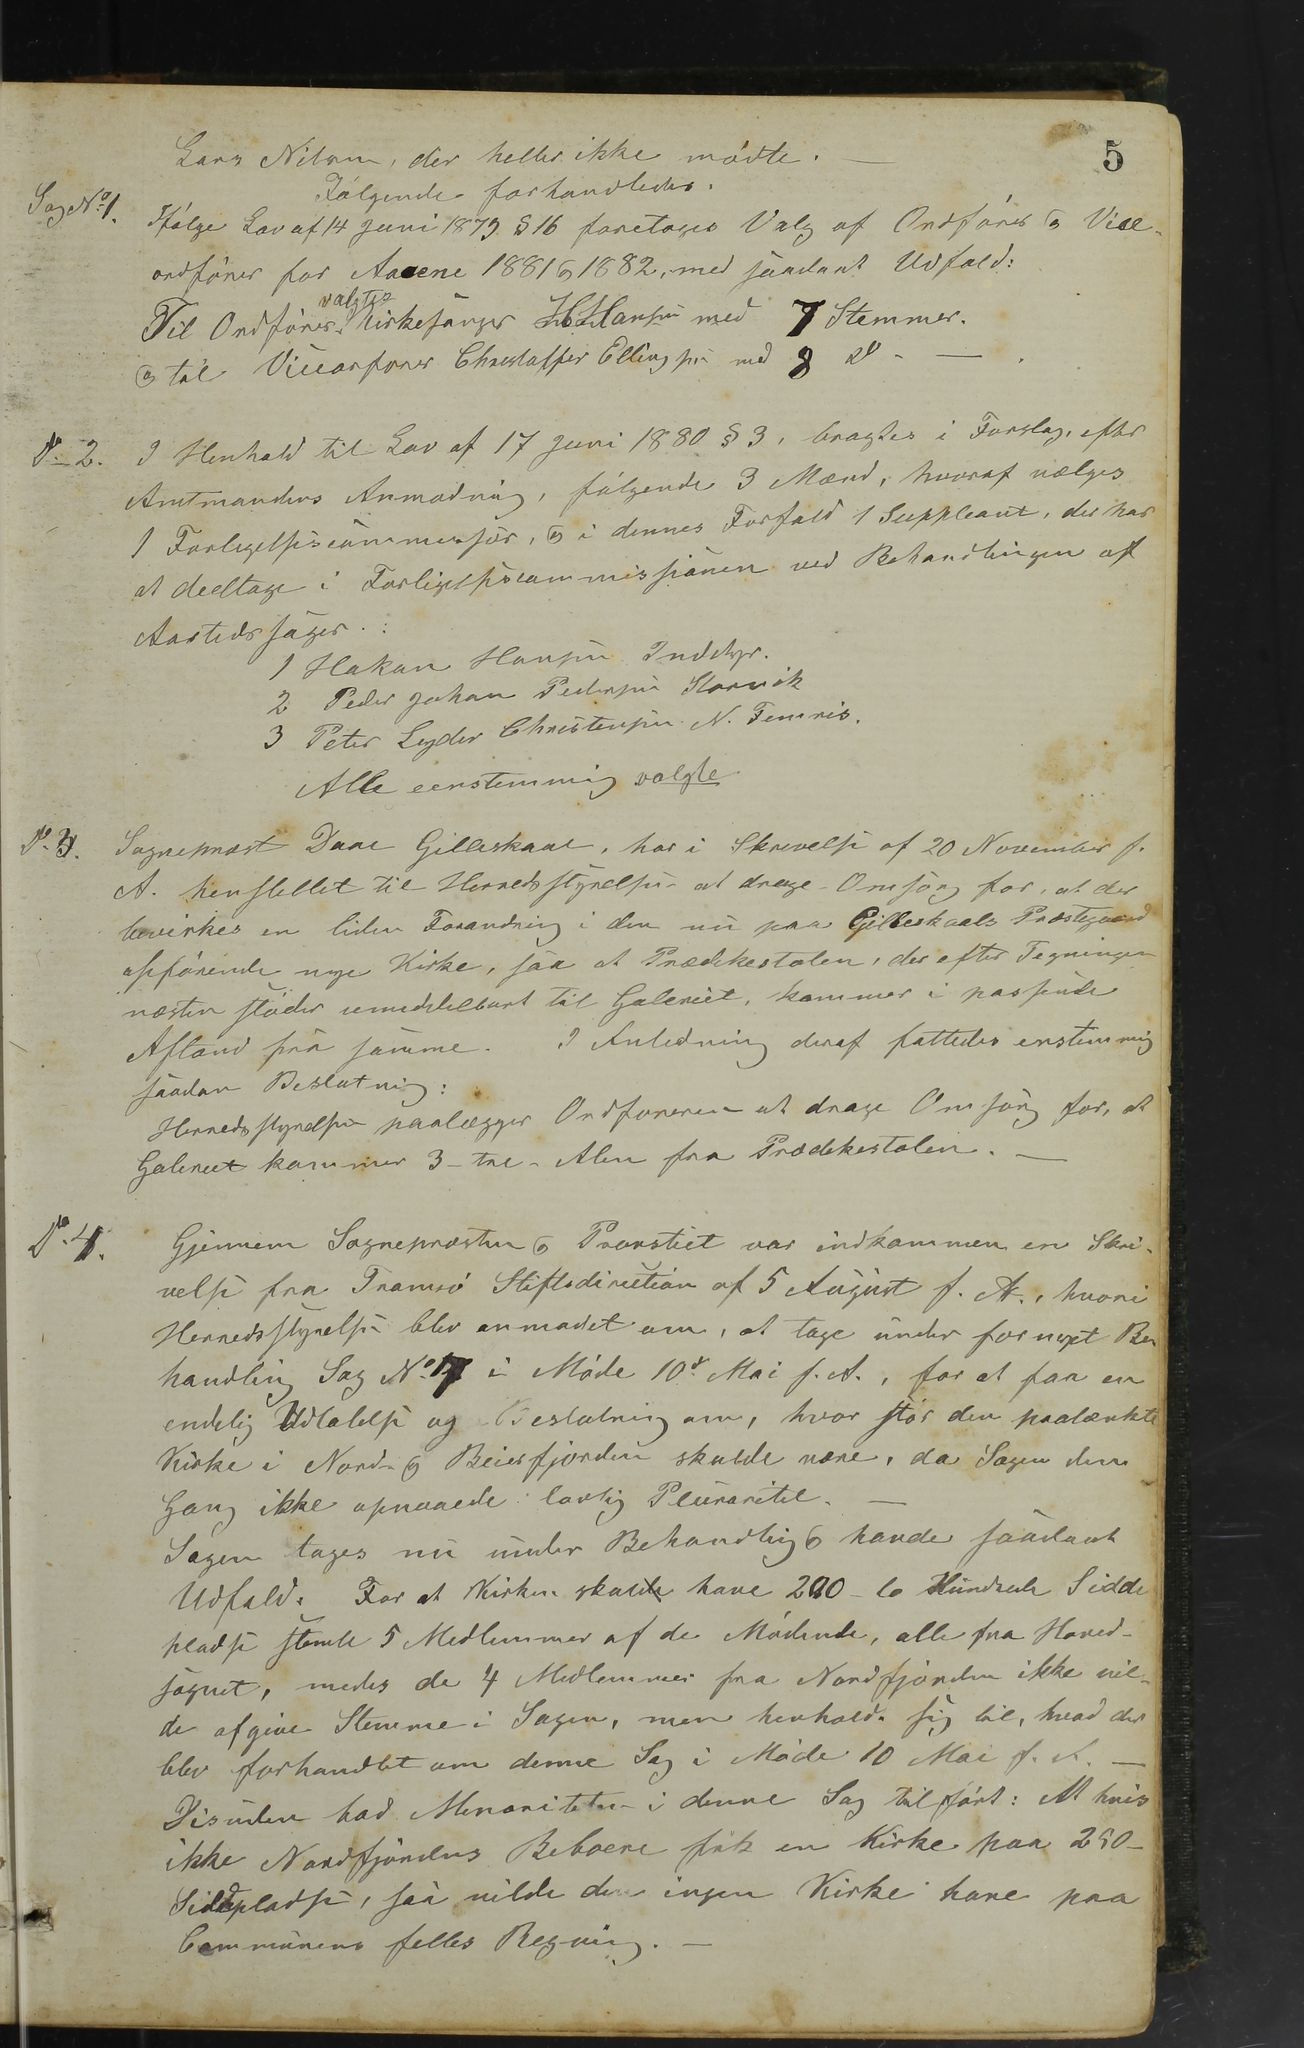 5
Lars Nilsen, der heller ikke mödte. —
Følgende forhandledes.
Sag No 1. Ifölge Lov af 14 Juni 1879 § 16 foretages Valg af Ordförer og Vice-
ordförer for Aarene 1881 og 1882, med saadant Udfald:
valgtes
Til Ordförer Kirkesanger H. Hansen med 7 Stemmer.
og til Viceorförer Christoffer Ellingsen med 8 do - — .
No 2. I Henhold til Lov af 17 Juni 1880 § 3, bragtes i Forslag, efter
Amtmandens Anmodning, fölgende 3 Mænd, hvoraf vælges
1 Forligelsescommissær, og i dennes Forfald 1 Suppleant, der har
at deeltage i Forligelsescommissionen ved Behandlingen af
Aastedssager. :
1 Hakon Hansen Inddyr.
2 Peder Johan Pedersen Storvik
3 Peter Lyder Christensen N. Femris.
Alle eenstemmig valgte
No 3. Sognepræst Daae Gilleskaal, har i Skrivelse af 20 November f.
A. henstillet til Herredsstyrelsen at drage Omsorg for, at der
bevirkes en liden Forandring i den nu paa Gilleskaals Præstegaard
opförende nye Kirke, saa at Prædikestolen, der efter Tegningen
næsten stöder umiddelbart til Galeriet, kommer i passende
Afstand fra samme. I Anledning deraf fattedes enstemmig
saadan Beslutning:
Herredsstyrelsen paalægger Ordföreren at drage Omsorg for, at
Galeriet kommer 3 - tre - Alen fra Prædikestolen. —
No 4. Gjennem Sognepræsten og Provstiet var indkommen en Skri-
velse fra Tromsö Stiftsdirection af 5 August f. A., hvori
Herredsstyrelsen blev anmodet om, at tage under fornyet Be-
handling Sag No 17 i Möde 10de Mai f. A., for at faa en
endelig Udtalelse og Beslutning om, hvor stor den paatænkte
Kirke i Nord- og Beierfjorden skulde være, da Sagen den
Gang ikke opnaaede lovlig Pluraritet. —
Sagen tages nu under Behandling og havde saadant
Udfald. For at Kirken skulde have 200 - to Hundrede Sidde
pladse stemte 5 Medlemmer af de Mödende, alle fra Hoved-
sognet, medes de 4 Medlemmer fra Nordfjorden ikke vil-
de afgive Stemme i Sagen, men henholdt sig til, hvad der
blev forhandlet om denne Sag i Möde 10 Mai f. A. —
Disuden had Menoriteten i denne Sag tilfört: At hvis
ikke Nordfjordens Beboere fik en Kirke paa 290 -
Siddepladse, saa vilde den ingen Kirke have paa
Communens felles Regning. —